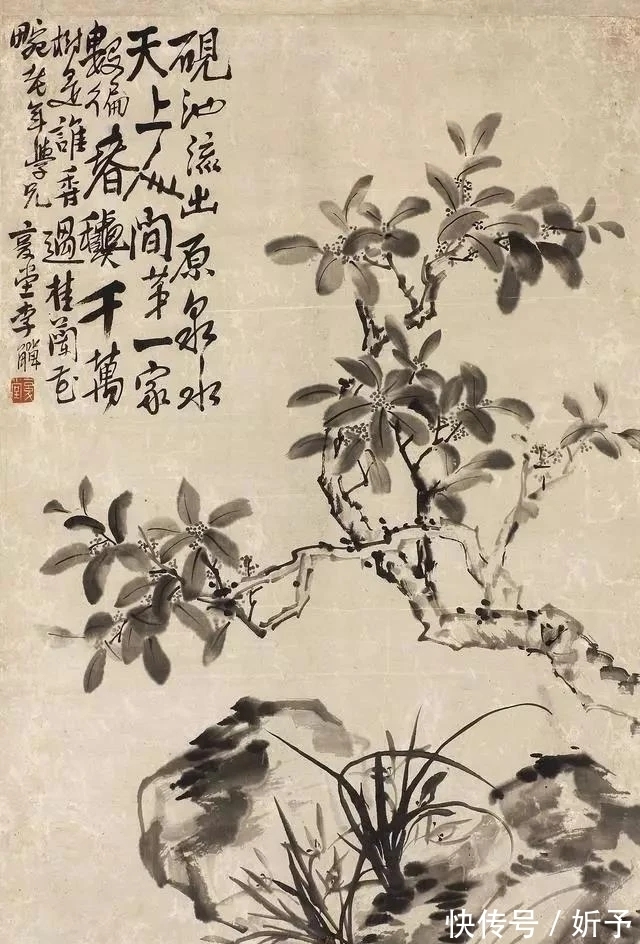 硯池流出原泉水
天上人間第一家
數徧春穠千萬
樹是誰香過桂蘭花
畹老年學兄 复堂李觶
快传号/妡予